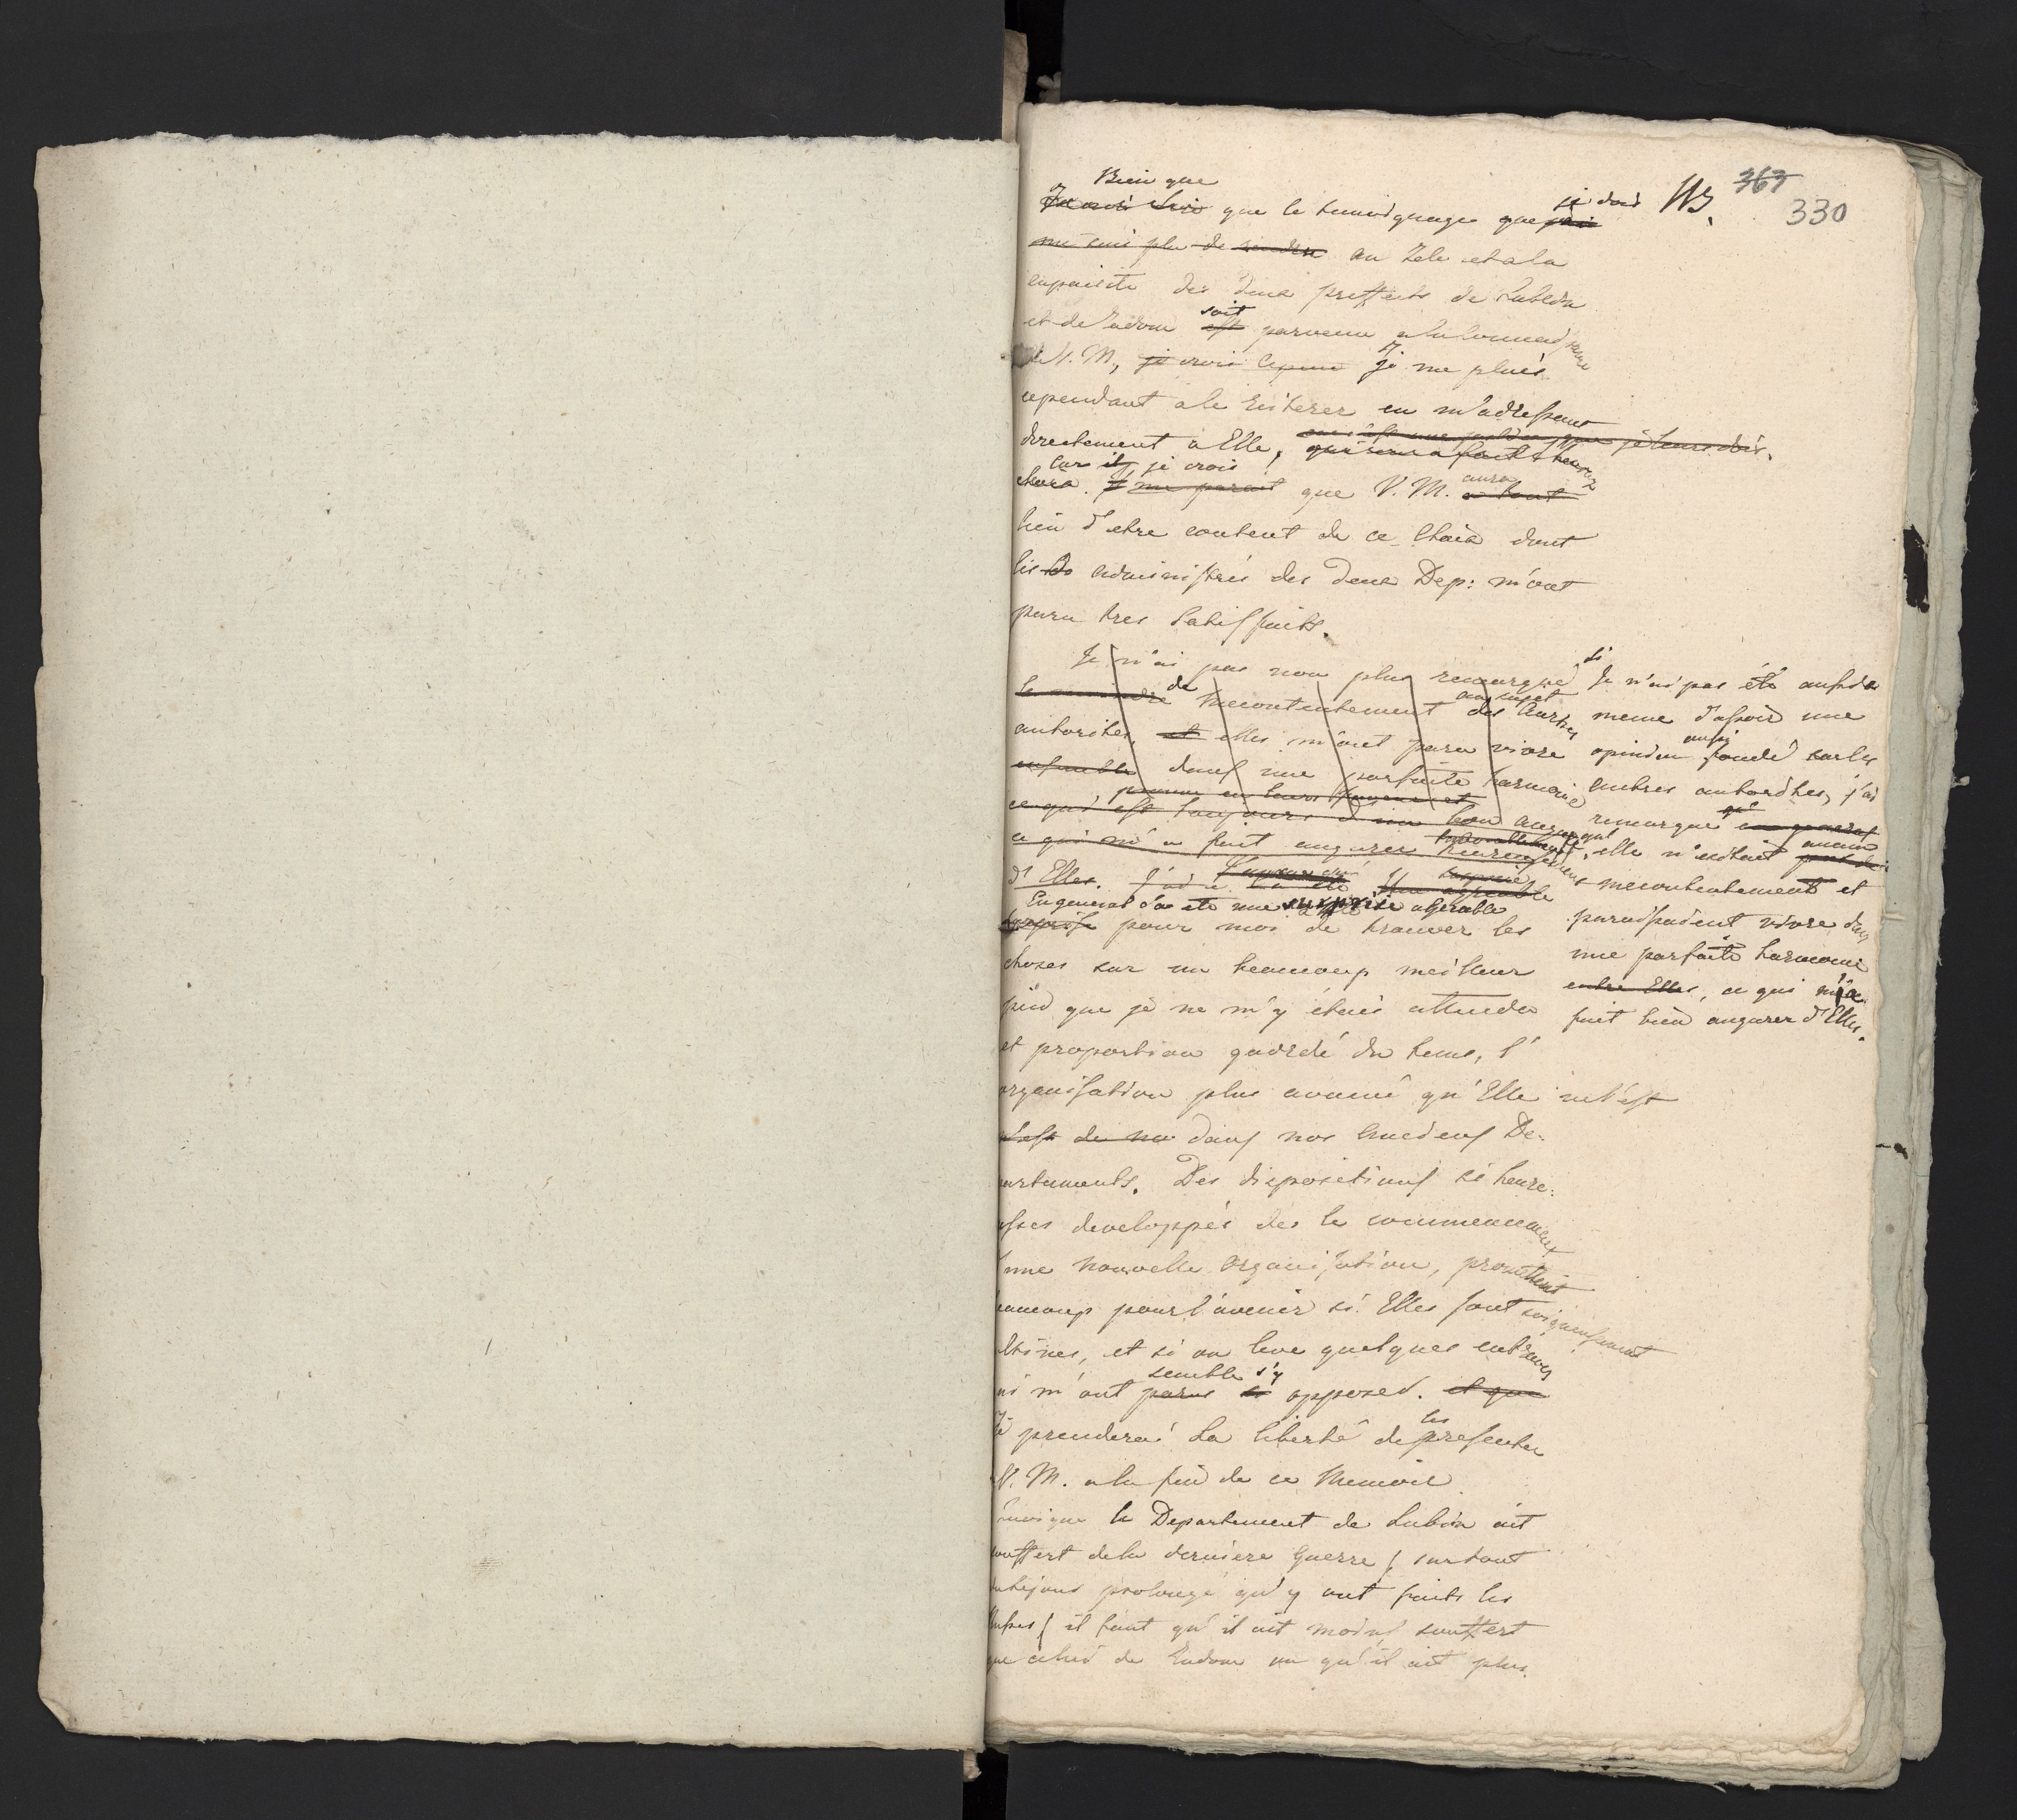 363
330
Bien que
que le temoignage que je dois
me suis plu de rendre au Zele et a la
capacité des deux preffects de Lublin
et de Radom soit parvenu a la connaissance
de V. M., je crois je me plais
cependant a le reiterer en m'adressant
directement a Elle,
car il, je crois
me parait que V. M. aura
lieu d'etre content de ce choix dont
les administrés des deux Dep: m'ont
paru tres satisfaits.
Je n'ai pas non plus remarqué
le moindre de mecontentement au sujet des autres
autorités, et elles m'ont paru vivre
ensemble dans une parfaite harmonie
ce qui est toujours d'un bon augure
ce qui m'a fait augurer
d'Elles.
En general ça été une surprise agréable
surprise pour moi de trouver les
choses sur un beaucoup meilleur
pied que je ne m'y étais attendu
et proportion gardée du tems, l'
organisation plus avancé qu'Elle ne l'est
dans nos anciens De-
partements. Des dispositions si heure:
uses developpés des le commencement
d'une nouvelle organisation, promettent
beaucoup pour l'avenir si Elles sont soigneusement
et si on leve quelques entraves
qui m'ont semblé s'y opposer. et que
Je prenderai la liberté de les presenter
V. M. a la fin de ce Memoire.
Quoique le Departement de Lublin ait
souffert de la derniere guerre ( surtout
du sejour prolongé qu'y ont faits les
Russes ( il faut qu'il ait moins souffert
que celui de Radom ou qu'il ait plus
Je n'ai pas été
meme d'assoir une
opinion aussi fondé sur les
autres autorités, j'ai
remarqué qu'en general
elle n'excitait aucun
mecontentement et
paraissaient vivre dans
une parfaite harmonie
entre Elles, ce qui m'a
fait bien augurer d'Elles.